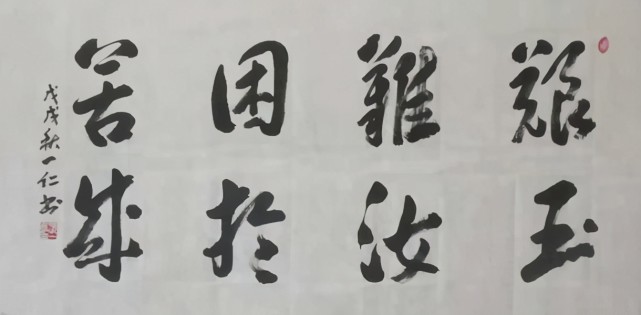 艱難困苦
玉汝於成
戊戌秋一仁书